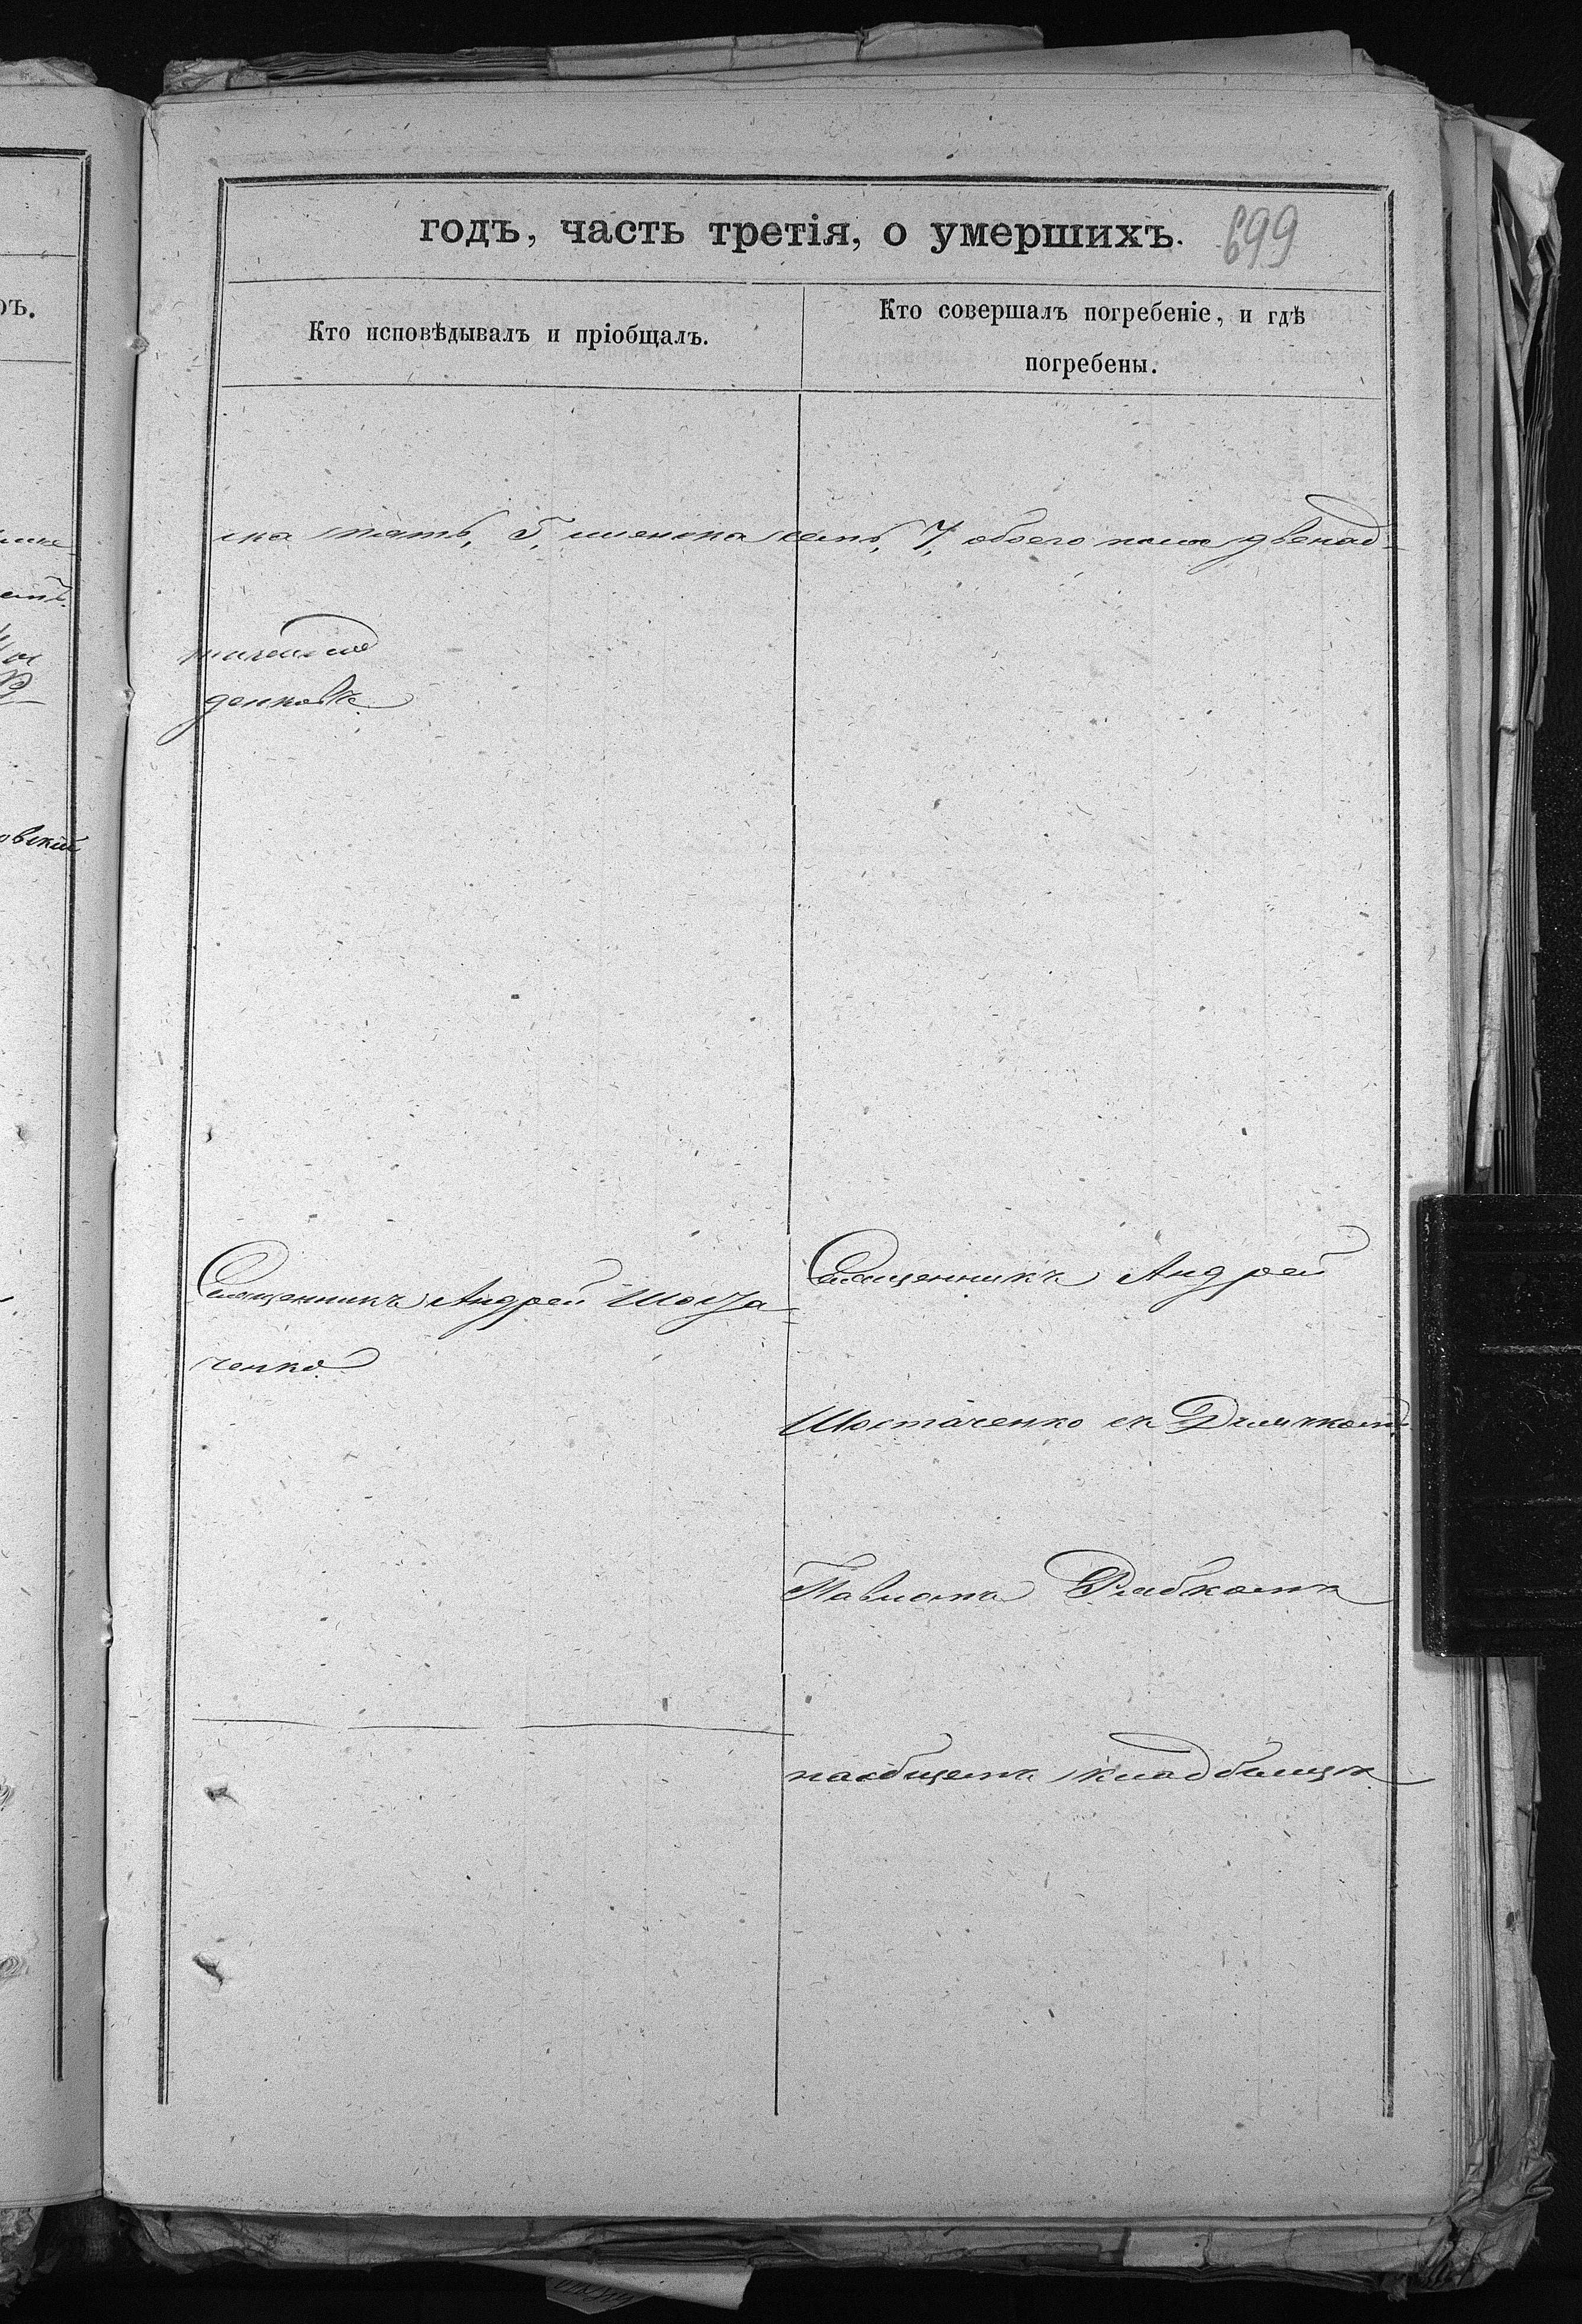 годъ, часть третія, о умершихъ. 699
Кто исповѣдывалъ и пріобщалъ.
Кто совершалъ погребеніе, и гдѣ
погребены.
ска пять, 5, женска семь, 7, обоего пола двенад-
Священникъ Андрей Шоста-
ченко
Священникъ Андрей
Шостаченко съ Дьячкомъ
Павломъ Рябкомъ
на общемъ кладбищѣ
овскій